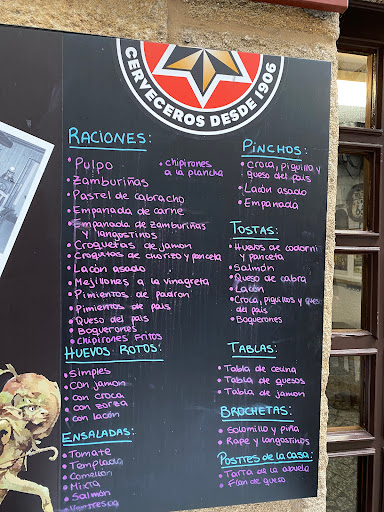 CERVECEROS DESDE 1906
RACIONES:
• Pulpo
• Zamburiñas
• Pastel de cabracho
• Empanada de carne
• Empanada de zamburiñas
y langostinos
• Croquetas de jamon
• Croquetas de chorizo y panceta
• Lacón asado
• Mejillones a la vinagreta
• Pimientos de padron
• Pimientos de pais
• Queso del pais
• Boquerones
• Chipirones fritos
• chipirones
a la plancha
HUEVOS ROTOS:
• Simples
• con jamon
• con croca
• con zorza
• con lacón
ENSALADAS:
• Tomate
• Templada
• Camelia
• Mixta
• Salmón
• Ventresca
PINCHOS:
• Croca, piquillo y
queso del pais
• Lacón asado
• Empanada
TOSTAS:
• Huevos de codorni
y panceta
• Salmón
• Queso de cabra
• Lacón
• Croca, piquillos y ques
del pais
• Boquerones
TABLAS:
• Tabla de cecina
• Tabla de quesos
• Tabla de jamon
BROCHETAS:
• Solomillo y piña
• Rape y langostinos
POSTRES DE LA CASA:
• Tarta de la abuela
• Flan de queso